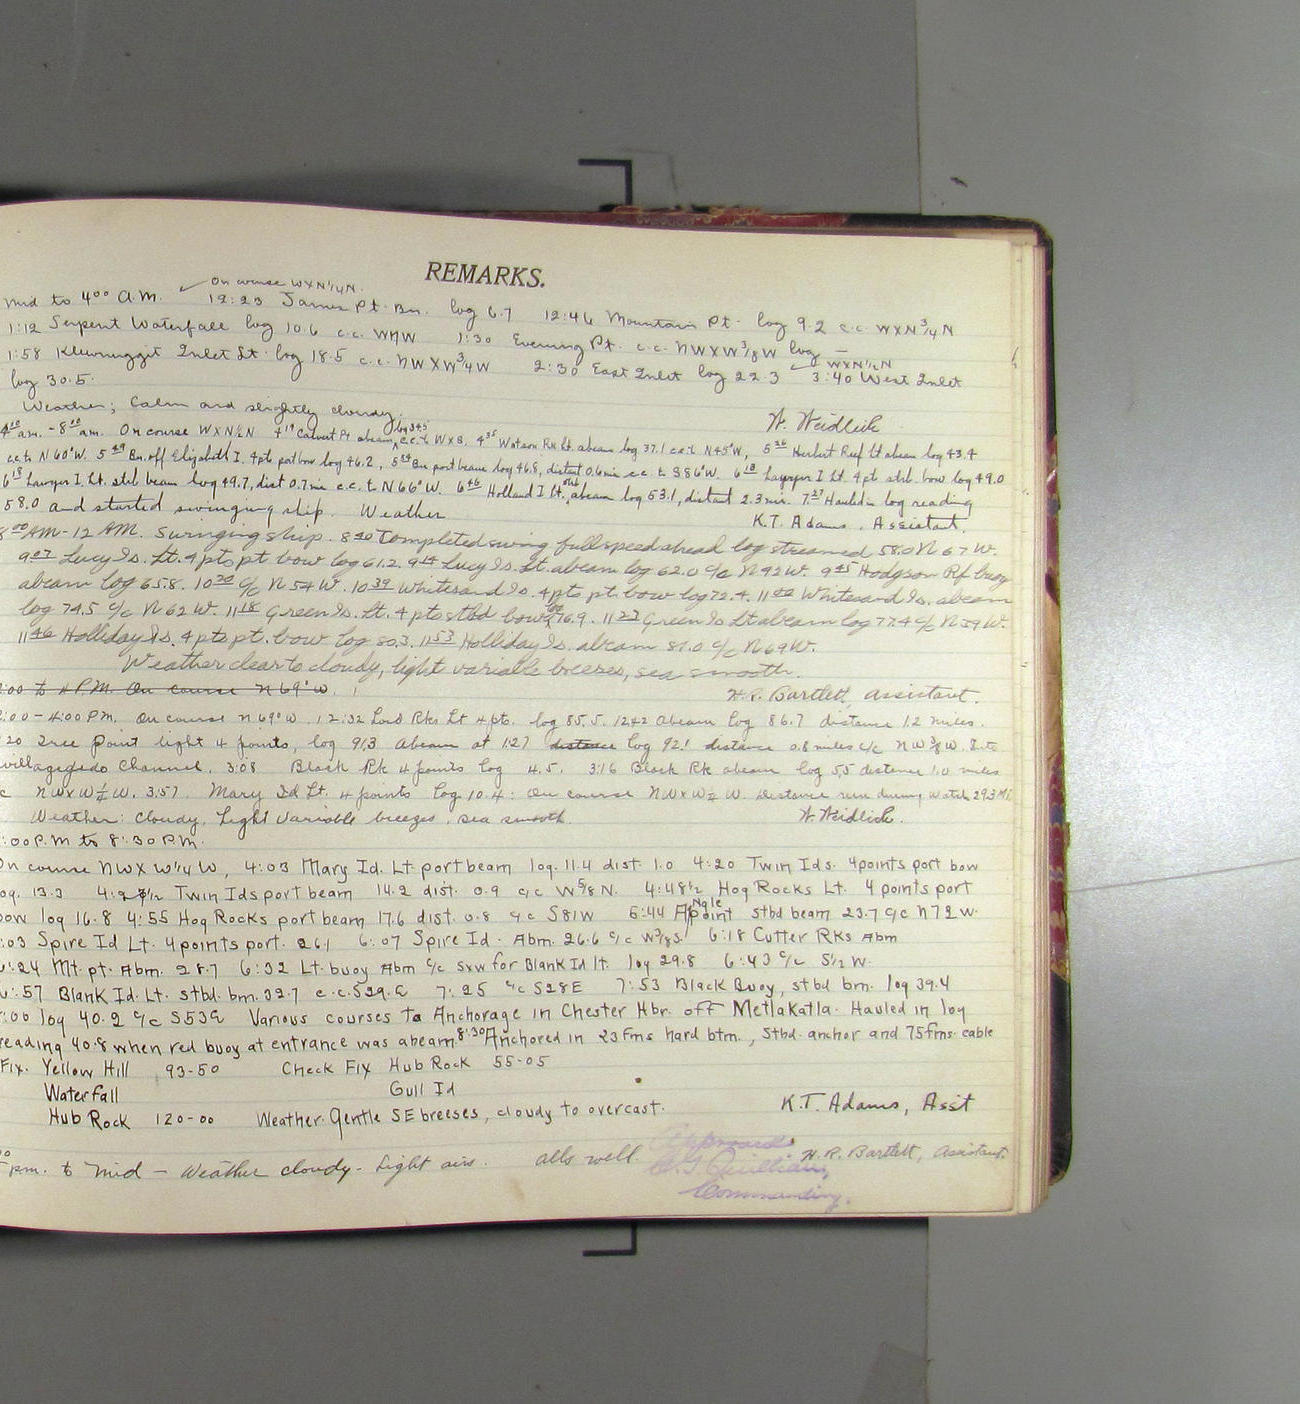 REMARKS.
On course WXN¼N.
Mid to 4⁰⁰ A.M. 12:23 James Pt. Bn. log 6.7 12:46 Mountain Pt. log 9.2 c.c. WXN¾N
1:12 Serpent Waterfall log 10.6 c.c. WNW 1:30 Evening Pt. c.c. NWXW⅜W log —
1:58 Klewnuggit Inlet Lt. log 18.5 c.c. NWXW¾W 2:30 East Inlet log 22.3 WXN½N 3:40 West Inlet
log 30.5.
Weather; Calm and slightly cloudy.
W. Weidlich
4¹⁰am. - 8¹⁰am. On course WXN½N 4¹⁹ Calvert Pt abeam log 34.5 c.c. to WXS. 4³⁵ Watson Rk Lt. abeam log 37.1 c.c. to N45°W, 5²⁶ Herbert Reef Lt abeam log 43.4
c.c. to N60°W. 5⁴⁹ Bn. off Elizabeth I. 4pt port bow log 46.2, 5⁵⁴ Bn port beam log 46.8, distant 0.6 mi c.c. to S86°W. 6¹⁰ Lawyer I Lt. 4pt strb. bow log 49.0
6¹⁸ Lawyer I. Lt. strb beam log 49.7, dist 0.7 mi c.c. to N66°W. 6⁴⁶ Holland I Lt. strb abeam log 53.1, distant 2.3 mi. 7²⁷ Hauled in log reading
58.0 and started swinging ship. Weather
K.T. Adams. Assistant.
8⁰⁰AM-12 AM. Swinging ship. 8⁴⁰ Completed swing full speed ahead log streamed 58.0 N67W.
9⁰⁷ Lucy Is. Lt. 4 pts pt bow log 61.2. 9¹⁴ Lucy Is. Lt. abeam log 62.0 c/c N92W. 9⁴⁵ Hodgson Rf buoy
abeam log 65.8. 10²⁰ c/c N54W. 10³⁹ Whitesand Is. 4pts pt. bow log 72.4. 11⁰⁰ Whitesand Is. abeam
log 74.5 c/c N62W. 11¹⁸ Green Is. Lt. 4 pts stbd bow log 76.9. 11²³ Green Is Lt abeam log 77.4 c/c N59W.
11⁴⁶ Holliday Is. 4 pts pt. bow log 80.3. 11⁵³ Holliday Is. abeam 81.0 c/c N69W.
Weather clear to cloudy, light variable breezes, sea smooth.
:00 to 4 P.M. On course N69°W.
H.R. Bartlett, Assistant.
2:00-4:00 P.M. On course N69°W 12:32 Lord Rks Lt 4 pt. log 85.5. 1242 abeam log 86.7 distance 1.2 miles.
20 Tree Point light 4 points, log 91.3 abeam at 1:27 distance log 92.1 distance 0.8 miles c/c NW⅜W. In to
villagigedo Channel. 3:08 Black Rk 4 points log 4.5. 3:16 Black Rk abeam log 5.5 distance 1.0 miles
c NWXW½W. 3:57. Mary Id Lt. 4 points log 10.4: On course NWXW½W. Distance run during watch 29.3 Mi.
Weather: Cloudy, Light variable breezes, sea smooth.
W. Weidlich.
:00 P.M to 8:30 P.M.
On course NWX W¼W, 4:03 Mary Id. Lt. port beam log. 11.4 dist. 1.0 4:20 Twin Ids. 4 points port bow
og. 13.3 Twin Ids port beam 14.2 dist. 0.9 c/c W⅝N. 4:48½ Hog Rocks Lt. 4 points port
bow log 16.8 4:55 Hog Rocks port beam 17.6 dist. 0.8 c/c S81W 5:44 Angle point stbd beam 23.7 c/c N72W.
:03 Spire Id Lt. 4 points port. 26.1 6:07 Spire Id. Abm. 26.6 c/c W⅜S. 6:18 Cutter RKs Abm
6:24 Mt. pt. Abm. 28.7 6:32 Lt. buoy Abm c/c SXW for Blank Id lt. log 29.8 6:43 c/c S½W.
6:57 Blank Id. Lt. stbd. bm. 32.7 c.c. S29.E 7:25 c/c S28E 7:53 Black Buoy, stbd bm. log 39.4
:00 log 40.2 c/c S53E Various courses to Anchorage in Chester Hbr. off Metlakatla. Hauled in log
reading 40.8 when red buoy at entrance was abeam. 8:30 Anchored in 23 fms hard btm., Stbd. anchor and 75 fms. cable
Fix. Yellow Hill 93-50 Check Fix Hub Rock 55-05
Waterfall Gull Id
Hub Rock 120-00 Weather. Gentle SE breeses, cloudy to overcast.
K.T. Adams, Asst
pm. to Mid — Weather cloudy - Light airs. alls well. H.R. Bartlett, Assistant.
Approved:
Quillian,
Commanding.